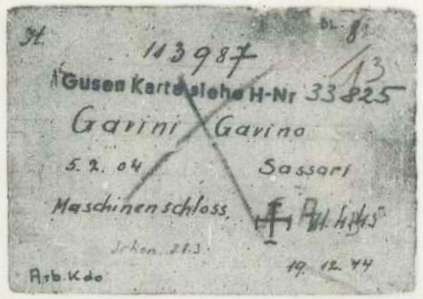 It. Bl. 8
113987 13
Gusen Karte siehe H-Nr 33825
Garini Gavino
5.2.04 Sassari
Maschinenschloss.
19.12.44
Arb.Kdo